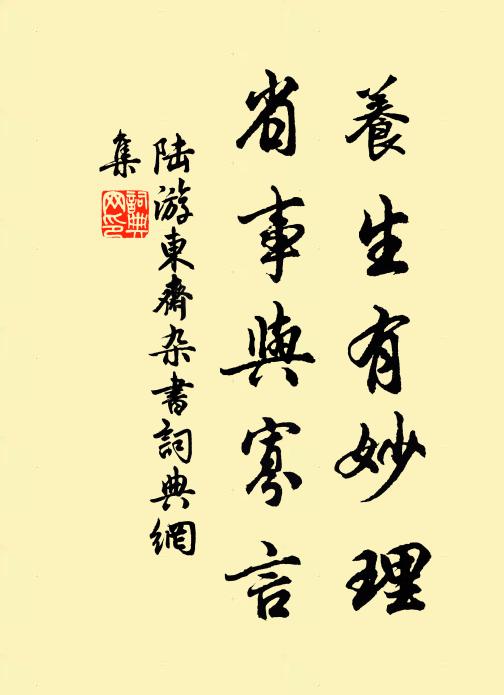 養生有妙理
省事與寡言
陸游東齋杂書詞典網
集
詞典
网印